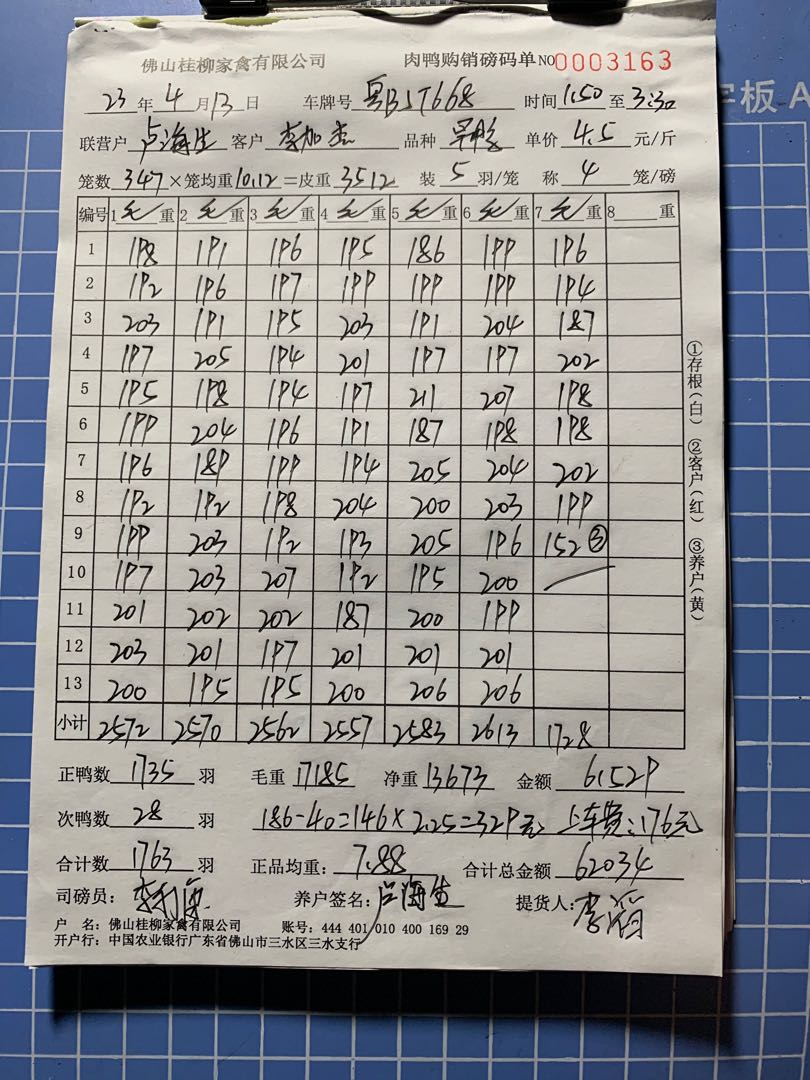 佛山桂柳家禽有限公司 肉鸭购销磅码单 NO0003163
23 年 4 月 13 日 车牌号 时间 1:50 至 3:30
联营户 卢海生 客户 李加 品种 单价 4.5 元/斤
笼数 347 ×笼均重 10.12 =皮重 3512 装 5 羽/笼 称 4 笼/磅
编号 1 毛 重 2 毛 重 3 毛 重 4 毛 重 5 毛 重 6 毛 重 7 毛 重 8 重
1 198 191 196 195 186 199 196
2 192 196 197 199 199 199 194
3 203 191 195 203 191 204 187
4 197 205 194 201 197 197 202
5 195 198 194 197 211 207 198
6 199 204 196 191 187 198 198
7 196 189 199 194 205 204 202
8 192 192 198 204 200 203 199
9 199 203 192 193 205 196 152 ③
10 197 203 207 192 195 200
11 201 202 202 187 200 199
12 203 201 197 201 201 201
13 200 195 195 200 206 206
小计 2572 2570 2562 2557 2583 2613 1728
正鸭数 1735 羽 毛重 17185 净重 13673 金额 61529
次鸭数 28 羽 186-40=146×2.25=329元 上车费:176元
合计数 1763 羽 正品均重: 7.88 合计总金额 62034
司磅员: 养户签名: 卢海生 提货人: 李
户 名: 佛山桂柳家禽有限公司 账号: 444 401 010 400 169 29
开户行: 中国农业银行广东省佛山市三水区三水支行
①存根(白) ②客户(红) ③养户(黄)
字板 A